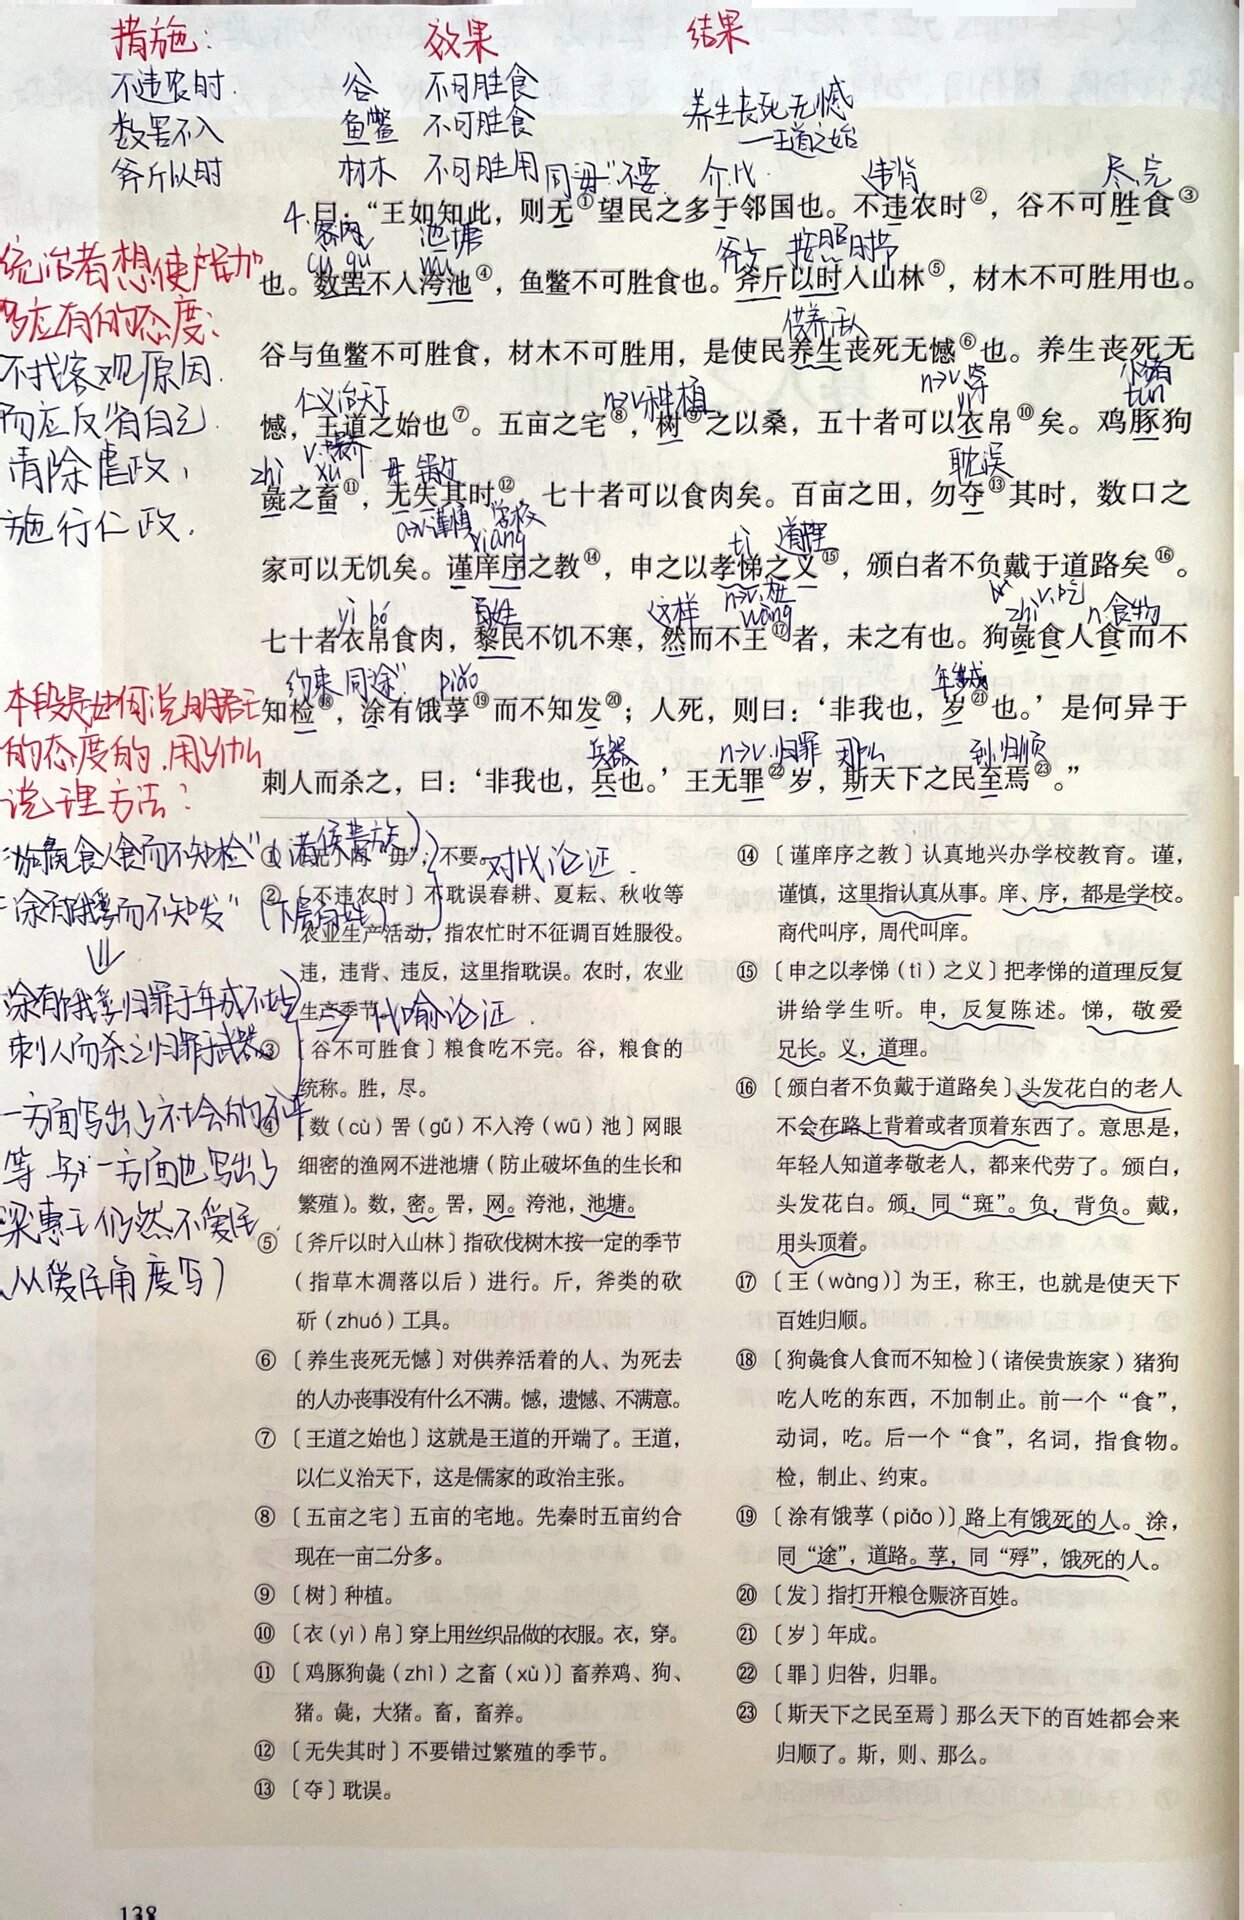 措施: 效果 结果
不违农时. 谷 不可胜食
数罟不入 鱼鳖 不可胜食 养生丧死无憾
—王道之始
斧斤以时 材木 不可胜用
同"毋"不要 介.比 违背 尽.完
4.曰："王如知此，则无①望民之多于邻国也。不违农时②，谷不可胜食③
密网 池塘 斧头 按照时节
cù gǔ wū
也。数罟不入洿池④，鱼鳖不可胜食也。斧斤以时入山林⑤，材木不可胜用也。
供养活人
谷与鱼鳖不可胜食，材木不可胜用，是使民养生丧死无憾⑥也。养生丧死无
仁义治天下 n→v.种植 n→v.穿 小猪
yì tún
憾，王道之始也⑦。五亩之宅⑧，树⑨之以桑，五十者可以衣帛⑩矣。鸡豚狗
zhì v.喂养 xù 毋 错过 耽误
彘之畜⑪，无失其时⑫，七十者可以食肉矣。百亩之田，勿夺⑬其时，数口之
a→v.谨慎 学校 xiáng tì 道理
家可以无饥矣。谨庠序之教⑭，申之以孝悌之义⑮，颁白者不负戴于道路矣⑯。
yì bó 百姓 这样 n→v.称王 wàng zhì v.吃 n.食物
七十者衣帛食肉，黎民不饥不寒，然而不王⑰者，未之有也。狗彘食人食而不
约束 同"途" piǎo 年成
知检⑱，涂有饿莩⑲而不知发⑳；人死，则曰：'非我也，岁㉑也。'是何异于
兵器 n→v.归罪 那么 到.归顺
刺人而杀之，曰：'非我也，兵也。'王无罪㉒岁，斯天下之民至焉㉓。"
统治者想使民加
多应有的态度:
不找客观原因.
而应反省自己.
清除虐政,
施行仁政.
本段是如何说明君王
的态度的.用了什么
说理方法?
"狗彘食人食而不知检"(诸侯贵族)
"涂有饿莩而不知发"(下层百姓)
对比论证.
⇓
涂有饿莩归罪于年成不好
刺人而杀之归罪于武器
⇒比喻论证.
一方面写出了社会的不平
等 另一方面也写出了
梁惠王仍然不爱民.
(从爱民角度写)
①〔无〕同"毋"，不要。
②〔不违农时〕不耽误春耕、夏耘、秋收等
农业生产活动，指农忙时不征调百姓服役。
违，违背、违反，这里指耽误。农时，农业
生产季节。
③〔谷不可胜食〕粮食吃不完。谷，粮食的
统称。胜，尽。
④〔数（cù）罟（gǔ）不入洿（wū）池〕网眼
细密的渔网不进池塘（防止破坏鱼的生长和
繁殖）。数，密。罟，网。洿池，池塘。
⑤〔斧斤以时入山林〕指砍伐树木按一定的季节
（指草木凋落以后）进行。斤，斧类的砍
斫（zhuó）工具。
⑥〔养生丧死无憾〕对供养活着的人、为死去
的人办丧事没有什么不满。憾，遗憾、不满意。
⑦〔王道之始也〕这就是王道的开端了。王道，
以仁义治天下，这是儒家的政治主张。
⑧〔五亩之宅〕五亩的宅地。先秦时五亩约合
现在一亩二分多。
⑨〔树〕种植。
⑩〔衣（yì）帛〕穿上用丝织品做的衣服。衣，穿。
⑪〔鸡豚狗彘（zhì）之畜（xù）〕畜养鸡、狗、
猪。彘，大猪。畜，畜养。
⑫〔无失其时〕不要错过繁殖的季节。
⑬〔夺〕耽误。
⑭〔谨庠序之教〕认真地兴办学校教育。谨，
谨慎，这里指认真从事。庠、序，都是学校。
商代叫序，周代叫庠。
⑮〔申之以孝悌（tì）之义〕把孝悌的道理反复
讲给学生听。申，反复陈述。悌，敬爱
兄长。义，道理。
⑯〔颁白者不负戴于道路矣〕头发花白的老人
不会在路上背着或者顶着东西了。意思是，
年轻人知道孝敬老人，都来代劳了。颁白，
头发花白。颁，同"斑"。负，背负。戴，
用头顶着。
⑰〔王（wàng）〕为王，称王，也就是使天下
百姓归顺。
⑱〔狗彘食人食而不知检〕（诸侯贵族家）猪狗
吃人吃的东西，不加制止。前一个"食"，
动词，吃。后一个"食"，名词，指食物。
检，制止、约束。
⑲〔涂有饿莩（piǎo）〕路上有饿死的人。涂，
同"途"，道路。莩，同"殍"，饿死的人。
⑳〔发〕指打开粮仓赈济百姓。
㉑〔岁〕年成。
㉒〔罪〕归咎，归罪。
㉓〔斯天下之民至焉〕那么天下的百姓都会来
归顺了。斯，则、那么。
138